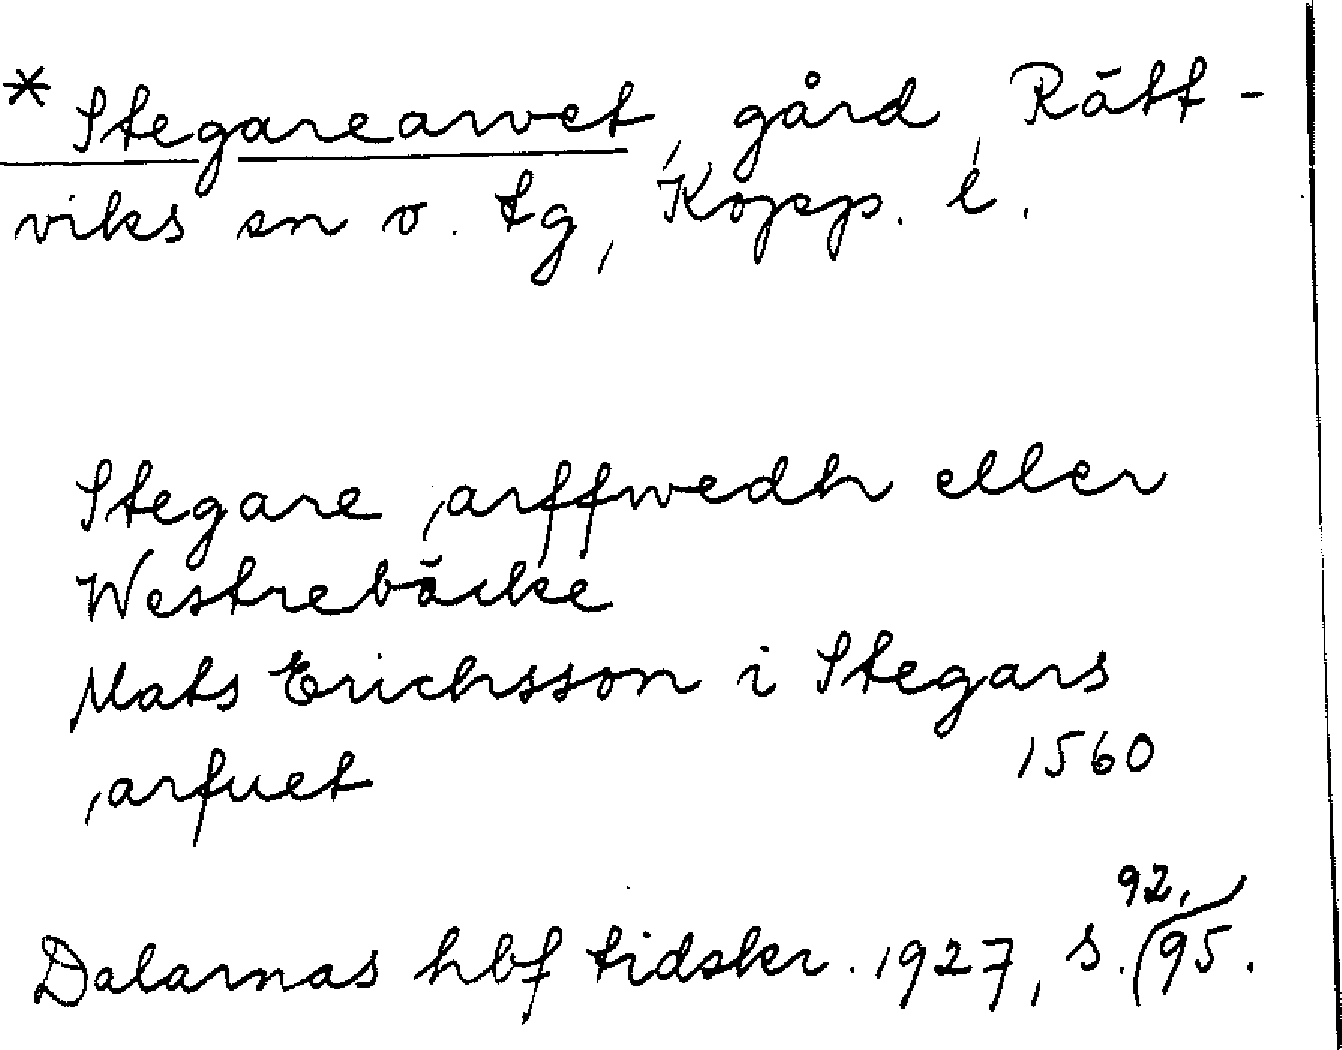 * Stegarearvet, gård, Rätt-
viks sn o. tg, Kopp. l.
Stegare, arffwedh eller
Westrebäcke
Mats Erichsson i Stegars
, arfuet 1560
Dalarnas hbf tidskr. 1927, s. 92, 95.